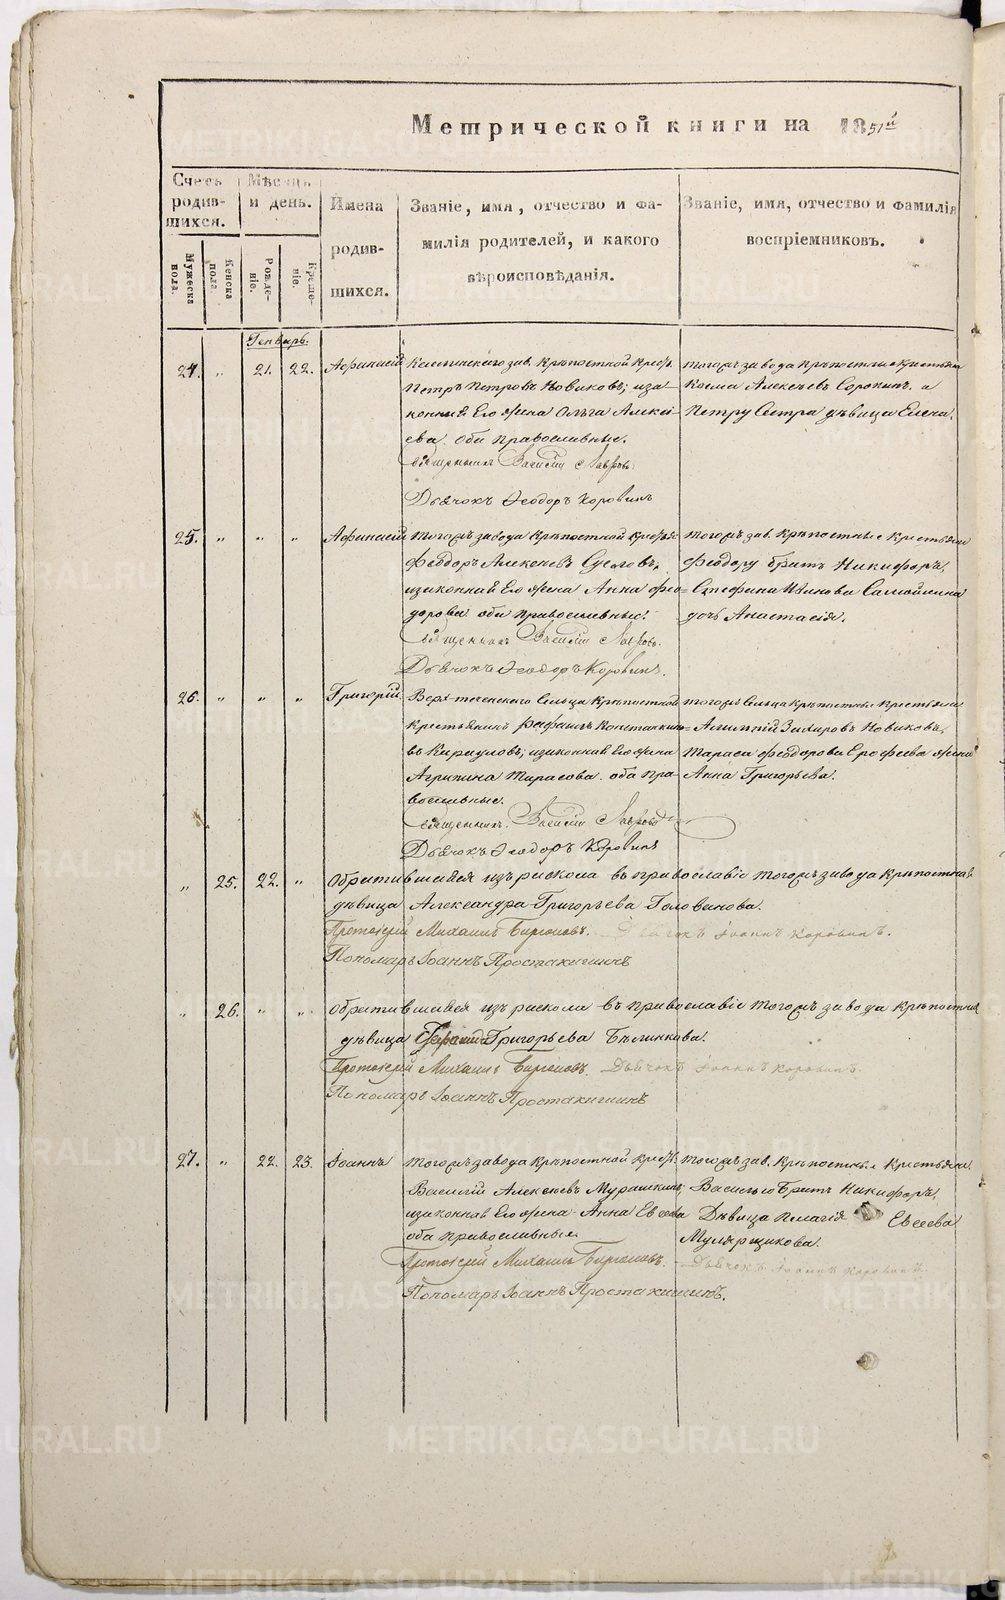 Метрической книги на 1851й
Счетъ родившихся.
Мужеска пола.
Женска пола.
Мѣсяцъ и день.
Рожденіе.
Крещеніе.
Имена родившихся.
Званіе, имя, отчество и фамилія родителей, и какого вѣроисповѣданія.
Званіе, имя, отчество и фамилія воспріемниковъ.
Генварь.
24. „ 21. 22. Афанасій
Каслинскаго зав. Крѣпостной Крест.
Петръ Петровъ Новиковъ, и за-
конная Его жена Ольга Алексѣ-
ева. оба православные.
Священникъ Василій Лавровъ.
Дьячокъ Ѳеодоръ Коровинъ
тогожъ завода крѣпостные крестьяне
Косма Алексѣевъ Сорокинъ. а
Петру Сестра дѣвица Елена.
25. „ „ „ Афанасій
тогожъ завода Крѣпостной
Феодоръ Алексѣевъ
и законная Его жена Анна Фео-
дорова оба православные.
Священникъ Василій Лавровъ.
Дьячокъ Ѳеодоръ Коровинъ.
тогожъ зав. Крѣпостные Крестьяне
Феодору братъ Никифоръ,
Стефана Иванова Самойлина
дочь Анастасія.
26. „ „ „ Григорій.
Верх-теченскаго Сельца Крѣпостной
Крестьянинъ Константино-
въ Карауловъ, и законная Его жена
Агрипина Тарасова. оба пра-
вославные.
Священникъ. Василій Лавровъ
Дьячокъ Ѳеодоръ Коровинъ
тогожъ Сельца Крѣпостные крестьяне
Захаровъ Новиковъ,
Тараса Феодорова Ерофеева жена
Анна Григорьева.
„ 25. 22. „ Обратившаяся изъ раскола въ православіе тогожъ завода Крѣпостная
дѣвица Александра Григорьева Голованова.
Протоіерей Михаилъ Бирюковъ. Дьячокъ Іоаннъ Коровинъ.
Пономарь Іоаннъ Простакишинъ
„ 26. „ „ Обратившаяся изъ раскола въ православіе тогожъ завода Крѣпостная
дѣвица Григорьева
Протоіерей Михаилъ Бирюковъ. Дьячокъ Іоаннъ Коровинъ.
Пономарь Іоаннъ Простакишинъ
27. „ 22. 23. Іоаннъ
тогожъ завода Крѣпостной Крест.
Василій Алексѣевъ Мурашкинъ,
и законная Его жена Анна Евсеева
оба православные
Протоіерей Михаилъ Бирюковъ.
Дьячокъ Іоаннъ Коровинъ.
Пономарь Іоаннъ Простакишинъ.
тогожъ зав. Крѣпостные Крестьяне
Василью Братъ Никифоръ,
Дѣвица Пелагія Евсеева
METRIKI.GASO-URAL.RU